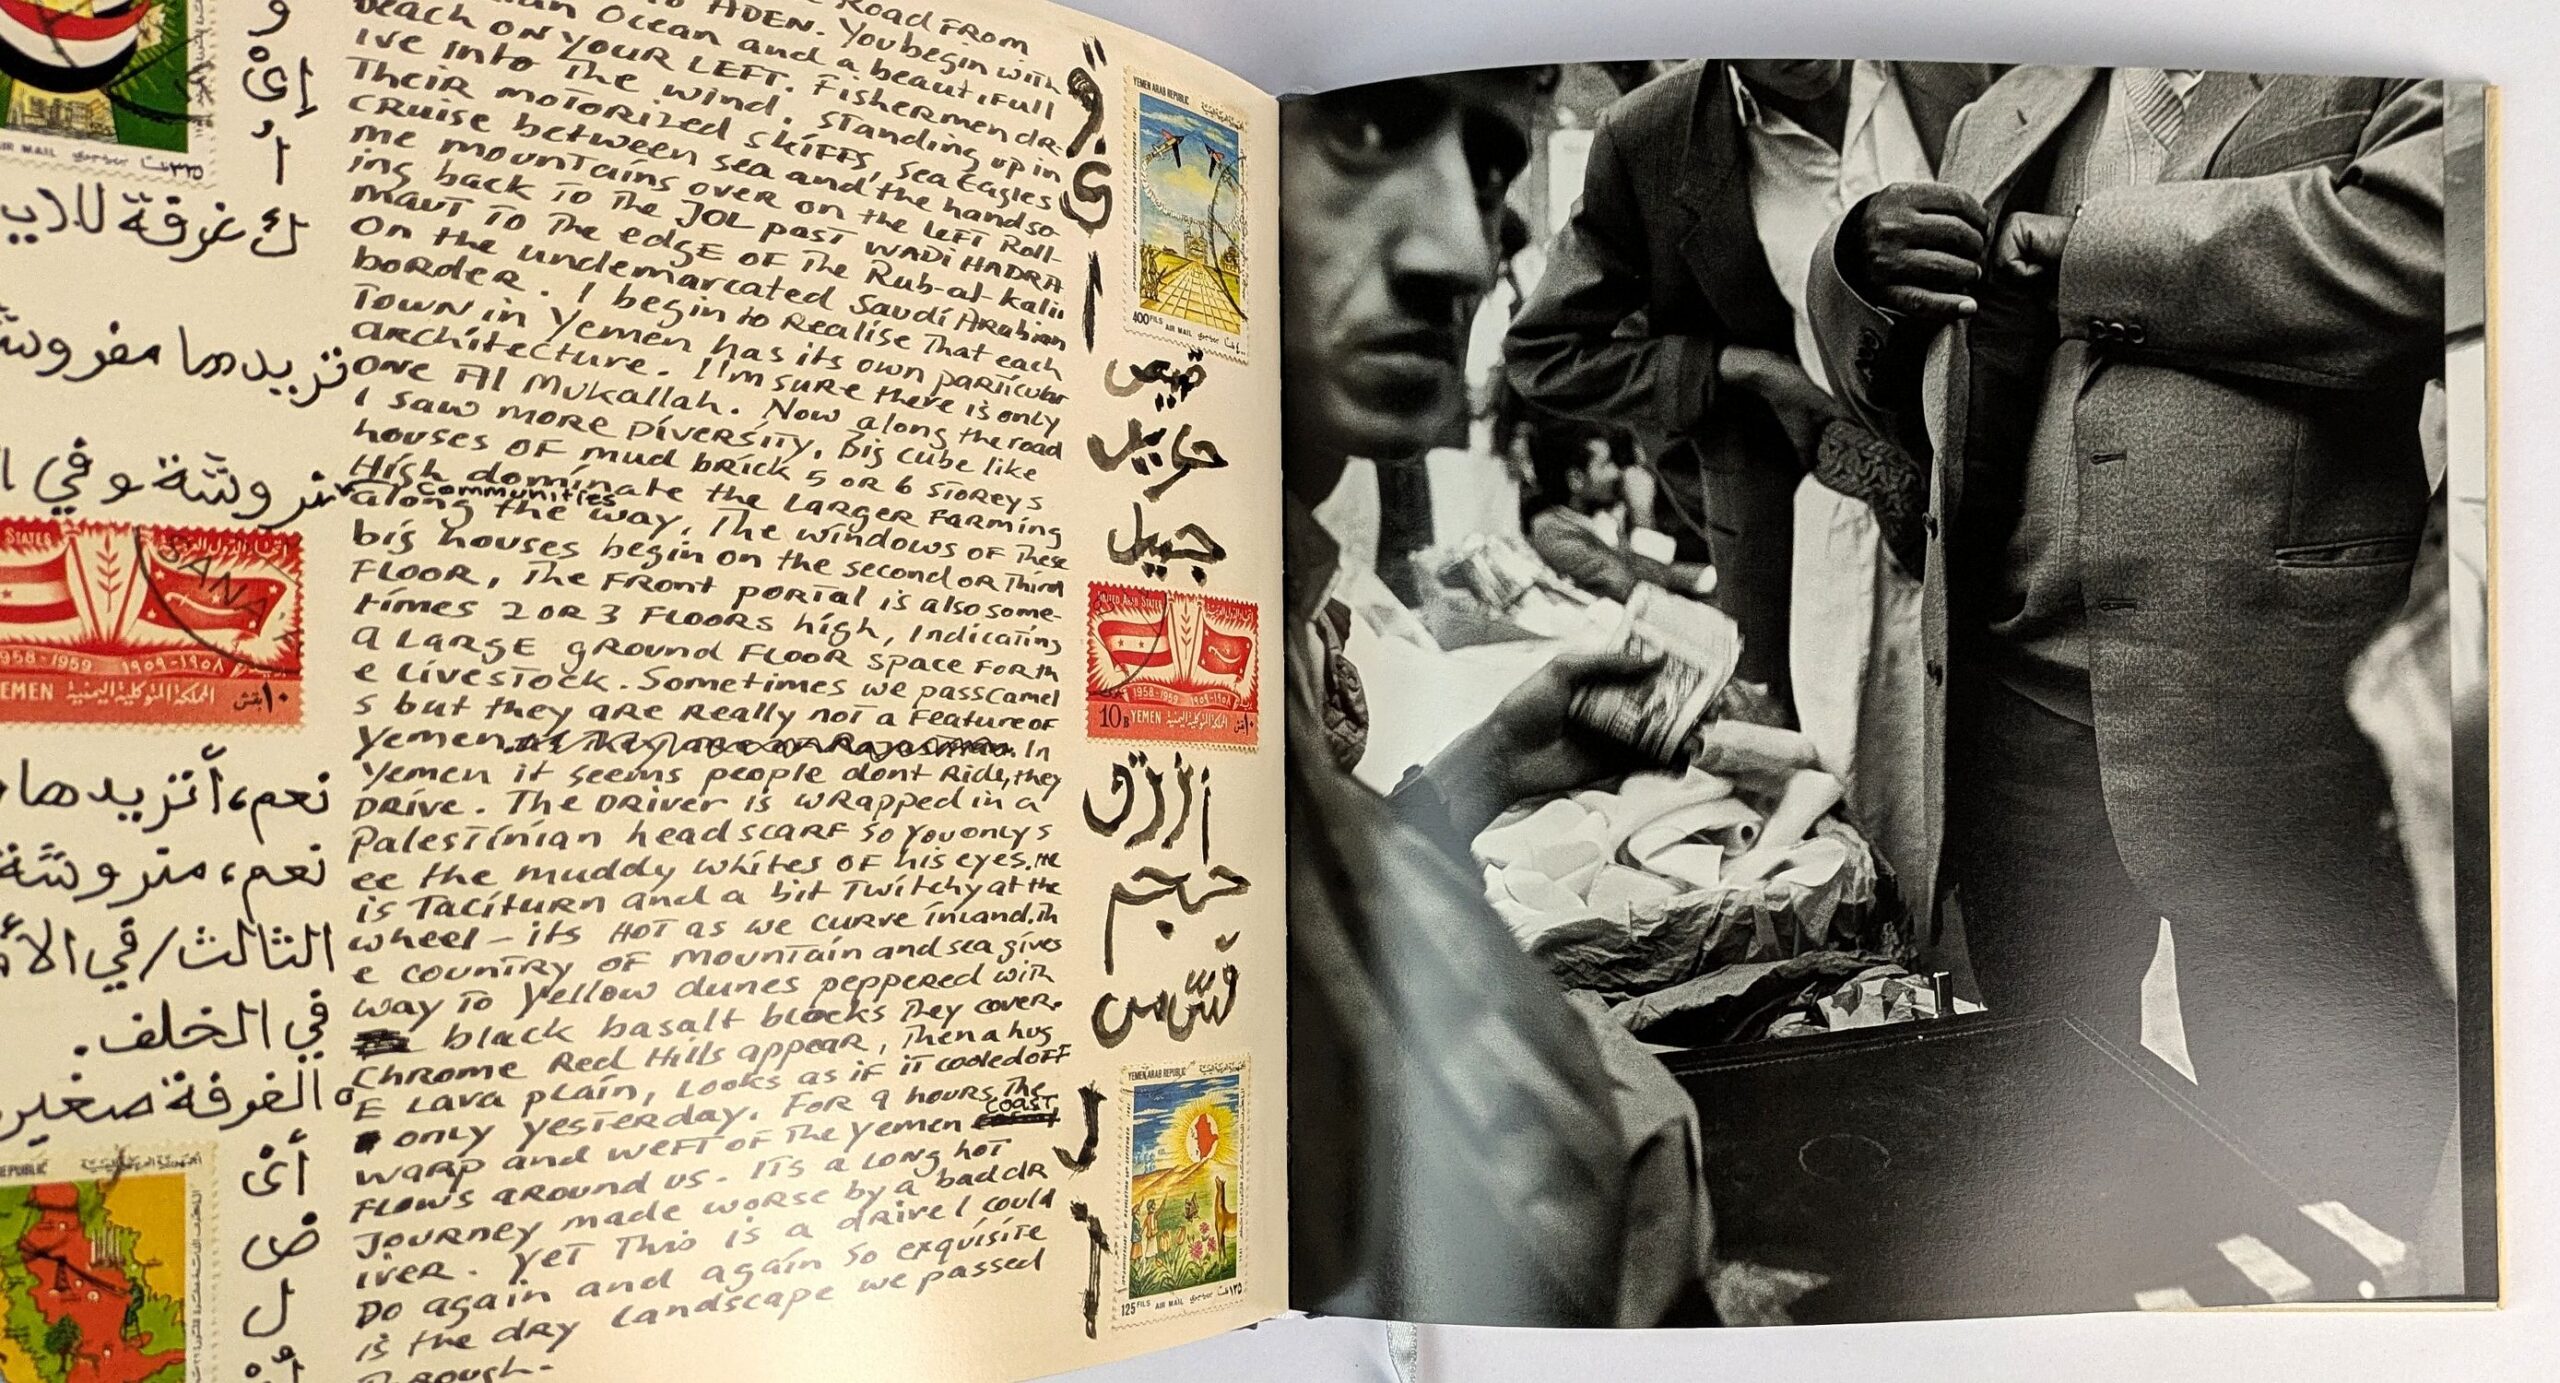 Road From
to ADEN. You begin with
Ocean and a beautifull
beach on your LEFT. Fishermen dr-
ive into the wind. Standing up in
Their motorized skiffs, sea Eagles
cruise between sea and the handso
me mountains over on the left Roll-
ing back to the JOL past WADI HADRA
maut to the edge of the Rub-al-kalii
On the undemarcated Saudi Arabian
border. I begin to Realise that each
Town in Yemen has its own particular
architecture. I'm sure there is only
one Al Mukallah. Now along the road
I saw more diversity. Big cube like
houses of mud brick 5 or 6 storeys
High dominate the larger farming
communities
along the way. The windows of these
big houses begin on the second or third
floor, the front portal is also some-
times 2 or 3 floors high, indicating
a large ground floor space for th
e livestock. Sometimes we pass camel
s but they are really not a feature of
Yemen. In
Yemen it seems people dont Ride, they
Drive. The driver is wrapped in a
Palestinian head scarf so you only s
ee the muddy whites of his eyes. He
is taciturn and a bit twitchy at the
wheel – its hot as we curve inland. Th
e country of mountain and sea gives
way to yellow dunes peppered with
black basalt blocks they cover.
Chrome Red Hills appear, then a hug
E Lava plain, looks as if it cooled off
only yesterday. For 9 hours the
coast
warp and weft of the Yemen
flows around us. Its a long hot
journey made worse by a bad dr
iver. Yet this is a drive I could
Do again and again so exquisite
is the dry landscape we passed
Through-
AIR MAIL
و
إىْ
أُ
ك غرفة للإيـ
تزيدها مفروشـ
وفي ا
STATES
SANA
1958-1959 ١٩٥٨-١٩٥٩
YEMEN المملكة المتوكلية اليمنية
نعم، أتزيدها،
نعم،
الثالث/في الأ
في الخلف.
الغرفة صغير
REPUBLIC
أىْ
ض
ل
YEMEN ARAB REPUBLIC
400 FILS AIR MAIL
قميص
جميل
UNITED ARAB STATES
1958-1959 ١٩٥٨-١٩٥٩
10B YEMEN المملكة المتوكلية اليمنية
أزرق
حجم
YEMEN ARAB REPUBLIC
125 FILS AIR MAIL ١٢٥